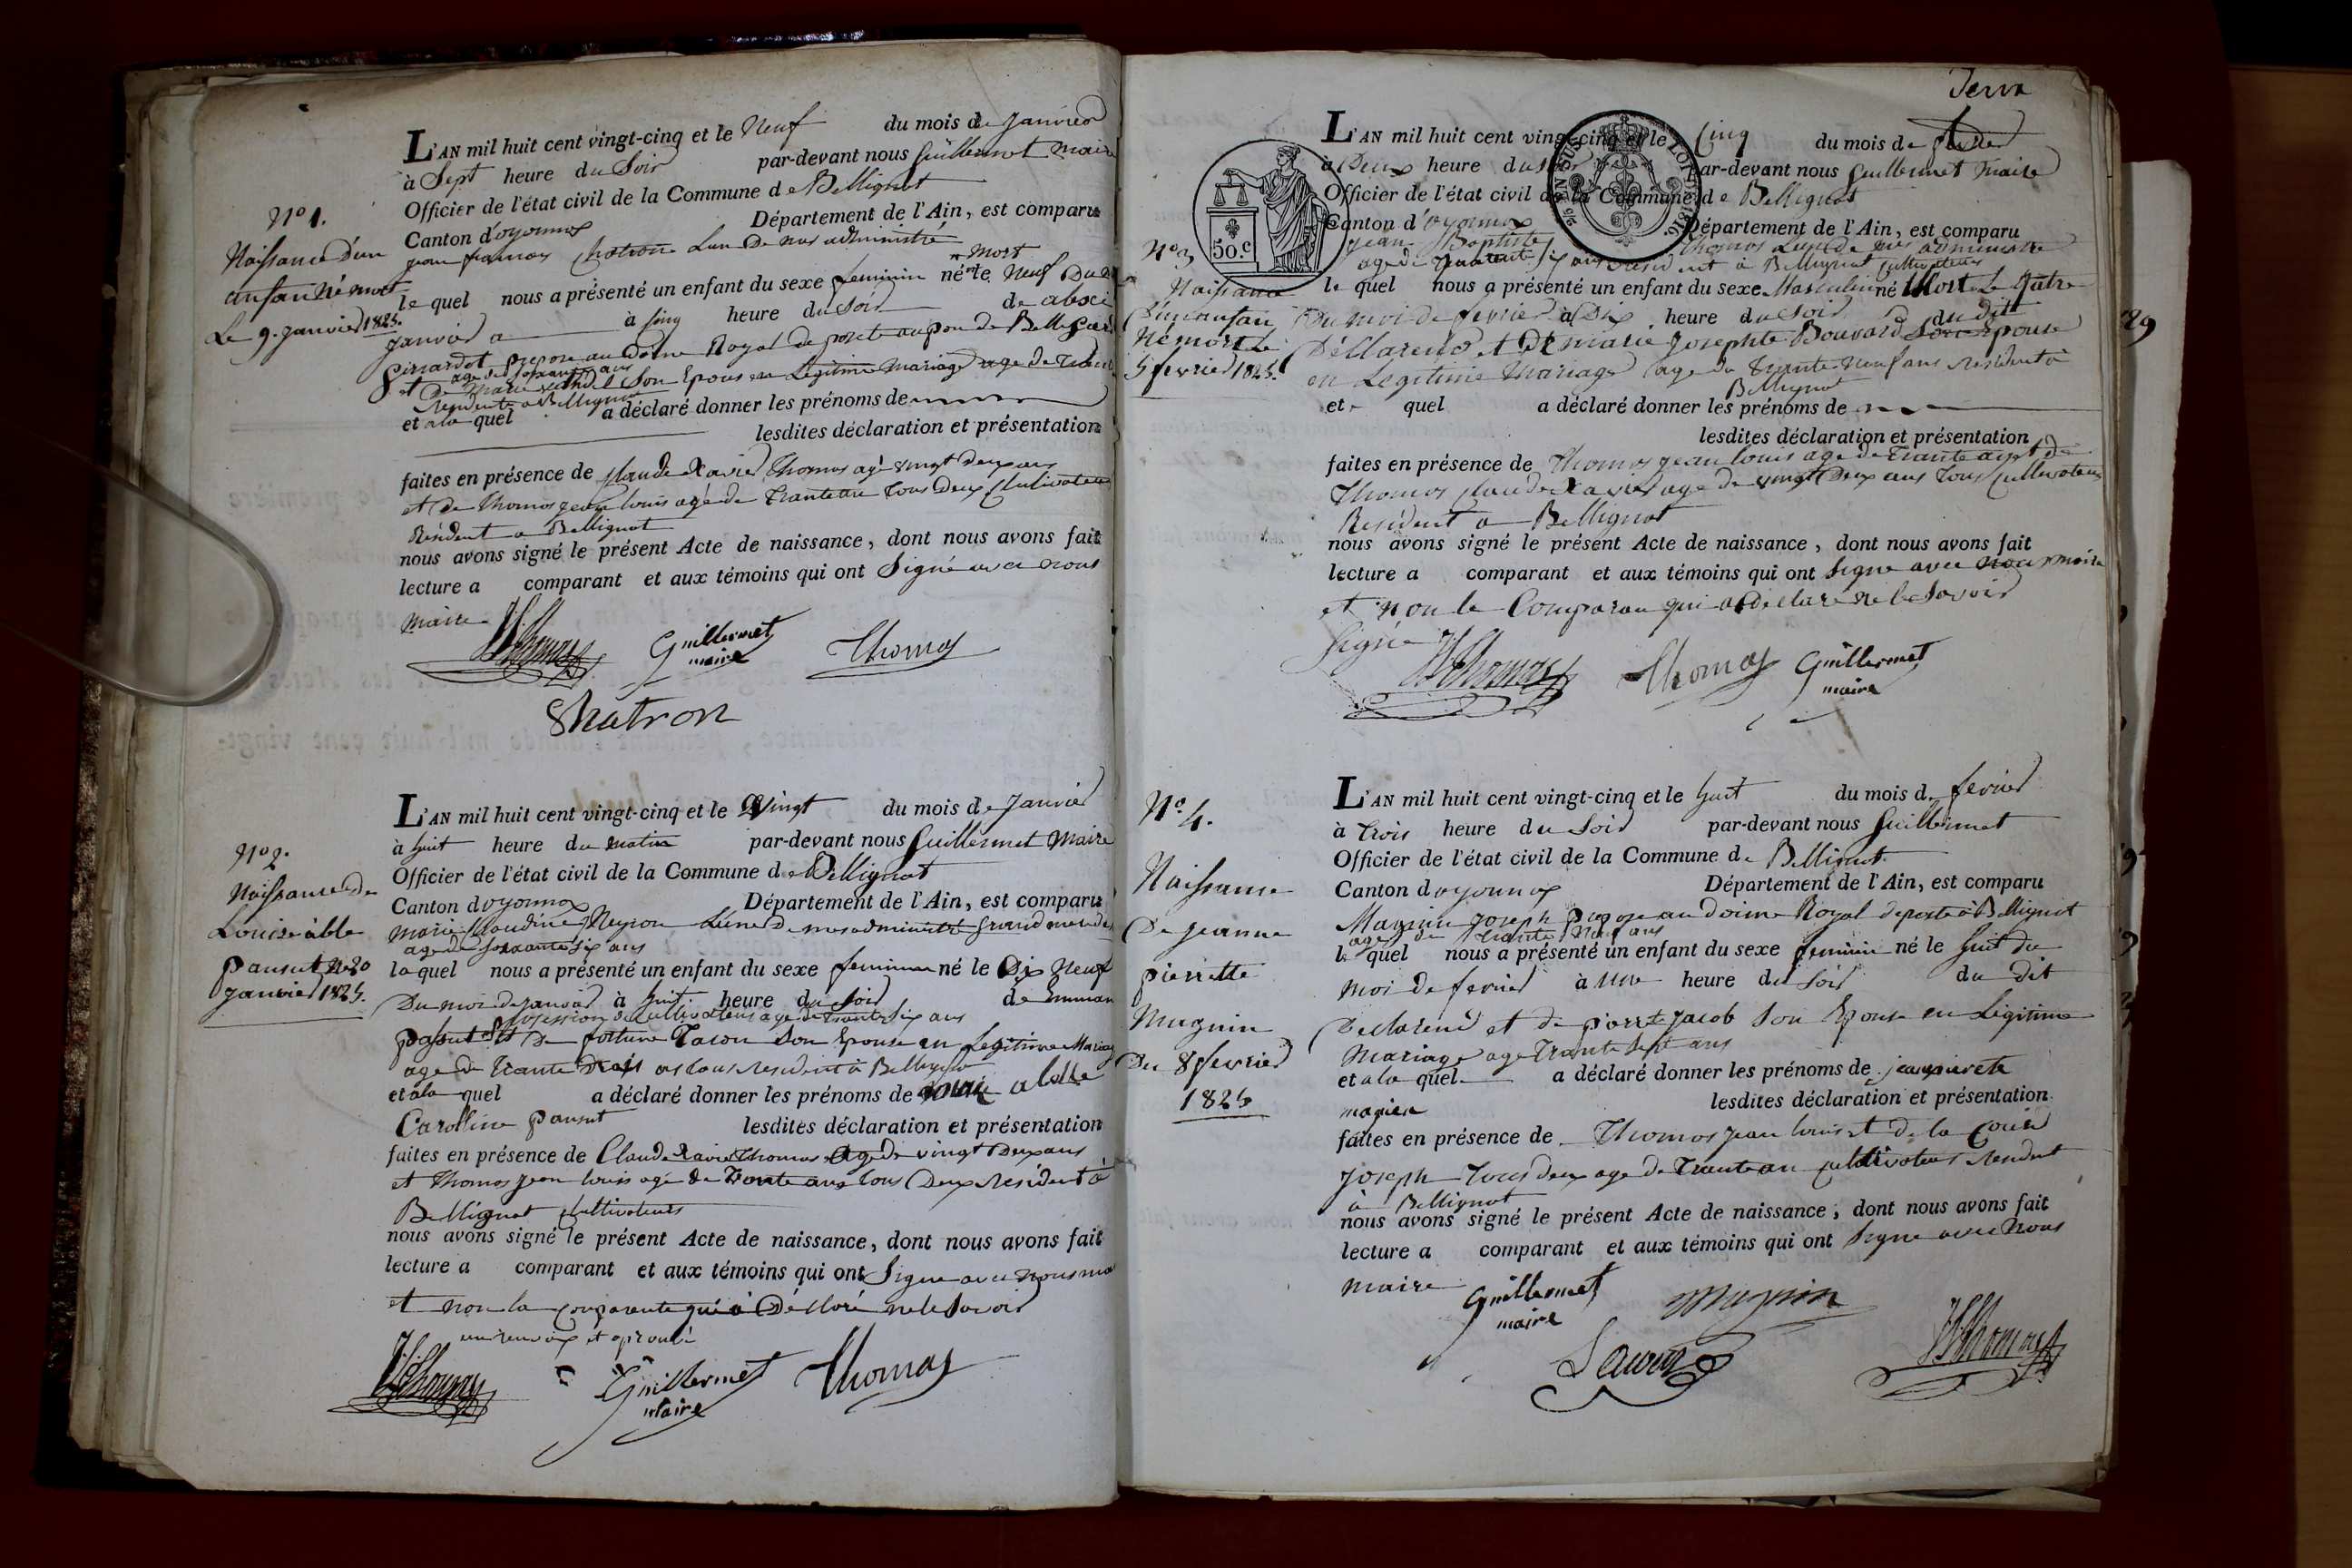 L'AN mil huit cent vingt-cinq et le Neuf du mois de Janvier
à Sept heure du Soir par-devant nous Guillermet Maire
Officier de l'état civil de la Commune de Bellignat
Canton d'oyonnax Département de l'Ain, est comparu
jean francois Chatron L'un De nos administré
mort
le quel nous a présenté un enfant du sexe feminin né le Neuf Du
janvier a à sinq heure du Soir de
Girardot prepose au Doine Royal de poste au pon de Belligna
age de soixante ans
et De Marie Son Epouse en Legitime Mariage age de
Residente a Bellignat
et a la quel a déclaré donner les prénoms de
lesdites déclaration et présentation
faites en présence de Claude Xavier Thomas agé vingt Deux ans
et De Thomas jean louis agé de Trante an Tous Deux Cultivateur
Résident a Bellignat
nous avons signé le présent Acte de naissance, dont nous avons fait
lecture a comparant et aux témoins qui ont Signé avec nous
Maire
Thomas Guillermet Thomas
maire
Chatron
N° 1.
Naissance d'un
anfan Né mort
Le 9. janvier 1825.
L'AN mil huit cent vingt-cinq et le Vingt du mois de Janvier
à huit heure du matin par-devant nous Guillermet Maire
Officier de l'état civil de la Commune de Bellignat
Canton d'oyonnax Département de l'Ain, est comparu
marie Claudine Neyron L'une De nos administré grand mere de
age de soixante six ans
la quel nous a présenté un enfant du sexe feminin né le Dix Neuf
Du moi de janvier à huit heure du soir de
profession de Cultivateur age de trante six ans
pansut et De fortune Tacon Son Epouse en Legitime Mariag
age de Trante Trois ans tous resident à Bellignat
et a la quel a déclaré donner les prénoms de
Carolline pansut lesdites déclaration et présentation
faites en présence de Claude Xavier Thomas Agé de vingt Deux ans
et Thomas jean louis agé de Trante ans tous Deux résident à
Bellignat Cultivateurs
nous avons signé le présent Acte de naissance, dont nous avons fait
lecture a comparant et aux témoins qui ont Signe avec nous ma
et non la Comparante qui a Déclaré ne le savoir
un renvoix et aprouvé
Thomas Guillermet Thomas
maire
N° 2.
Naissance de
Louise able
pansut le 20
janvier 1825.
L'AN mil huit cent vingt-cinq et le Cinq du mois de
à Deux heure du soir par-devant nous Guillermet Maire
Officier de l'état civil de la Commune de Bellignat
Canton d'oyonnax Département de l'Ain, est comparu
Jean Baptiste Thomas L'un de nos administré
age de quarente six ans resident à Bellignat Cultivateur
le quel nous a présenté un enfant du sexe Masculin né Mort Le Qatre
Du moi de fevrier à Dix heure du Soir du dit
Déclarend et De marie josephte Bouvard son Epouse
en Legitime Mariage age de Trante Neuf ans résident à
Bellignat
et quel a déclaré donner les prénoms de
lesdites déclaration et présentation
faites en présence de Thomas jean louis age de Trante ans et de
Thomas Claude Xavier age de vingt Deux ans Tous Cultivateur
Resident a Bellignat
nous avons signé le présent Acte de naissance, dont nous avons fait
lecture a comparant et aux témoins qui ont Signe avec nous maire
et non le Comparan qui a Déclare ne le Savoir
Signé
Thomas Thomas Guillermet
maire
50.c
N° 3
Naissance
D'un anfan
Né mort le
5 fevrier 1825.
L'AN mil huit cent vingt-cinq et le huit du mois de fevrier
à Trois heure du Soir par-devant nous Guillermet
Officier de l'état civil de la Commune de Bellignat
Canton d'oyonnax Département de l'Ain, est comparu
Magnin Joseph Prepose au doine Royal de poste à Bellignat
age de trante Neuf ans
le quel nous a présenté un enfant du sexe feminin né le huit du
moi de fevrier à une heure du soir du dit
Declarend et de pierrete jacob Son Epouse en Légitime
Mariage age Trante Sept ans
et a la quel a déclaré donner les prénoms de janpierete
magien lesdites déclaration et présentation
faites en présence de Thomas jean louis et de la
Joseph Tous deux age de Trante an Cultivateur resident
à Bellignat
nous avons signé le présent Acte de naissance, dont nous avons fait
lecture a comparant et aux témoins qui ont Signe avec Nous
maire
Guillermet Magnin
maire
Thomas
N° 4.
Naissance
De jeanne
pierrette
Magnin
Du 8 fevrier
1825